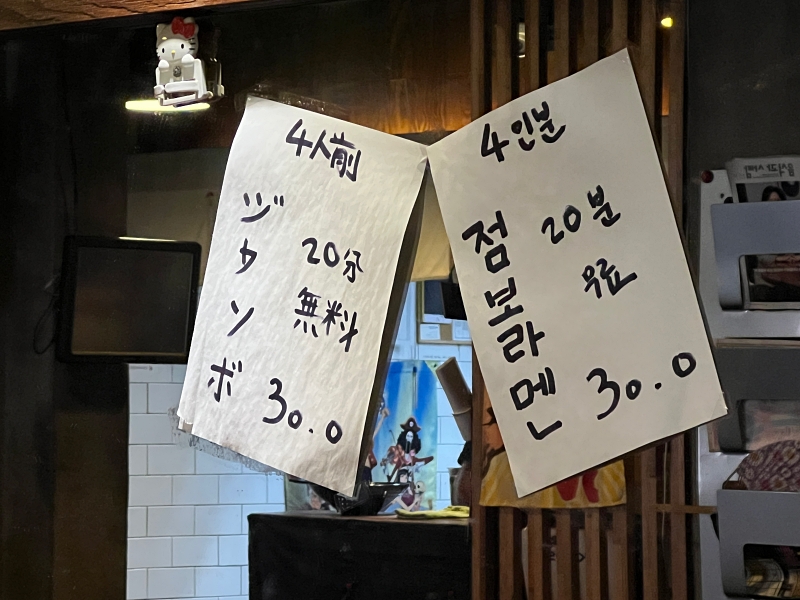 4人前
ヅウンボ
20分
無料
30.0
4인분
점보라멘
20분
무료
30.0